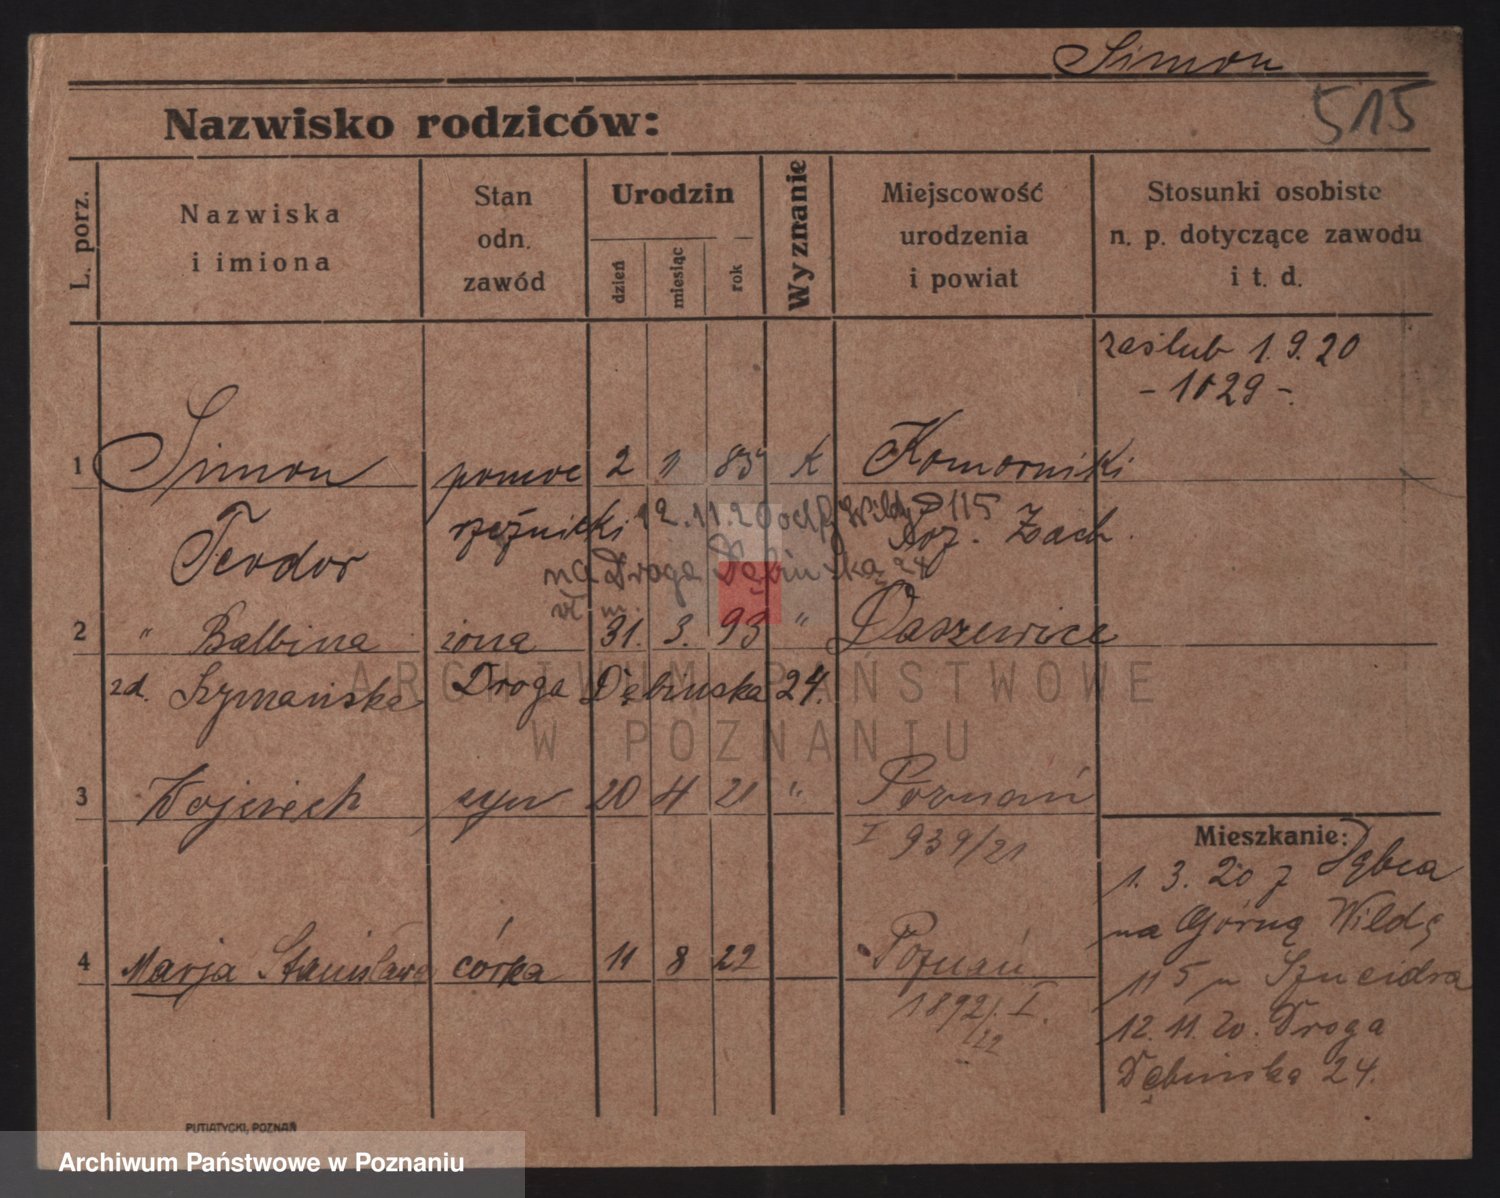 Simon
515
Nazwisko rodziców:
L. porz.
Nazwiska
i imiona
Stan
odn.
zawód
Urodzin
dzień
miesiąc
rok
Wyznanie
Miejscowość
urodzenia
i powiat
Stosunki osobiste
n. p. dotyczące zawodu
i t. d.
zaślub 1.9.20
- 1029 -
1 Simon pomoc 2 1 85 K Komorniki
Teodor rzeźnicki Poz. Zach.
12.11.20 od G. Wildy 115
na Droga Dębińska 24
2 " Balbina żona 31. 3. 93 " Daszewice
zd. Szymańska Droga Dębinska 24.
3 Wojciech syn 20 4 21 " Poznań
I 939/21
4 Marja Stanisława córka 11 8 22 Poznań
1892/I.
22
Mieszkanie:
1.3.20 z Dębca
na Górną Wildę
115 u Szneidra
12.11.20. Droga
Dębinska 24.
PUTIATYCKI, POZNAŃ
ARCHIWUM PAŃSTWOWE
W POZNANIU
Archiwum Państwowe w Poznaniu